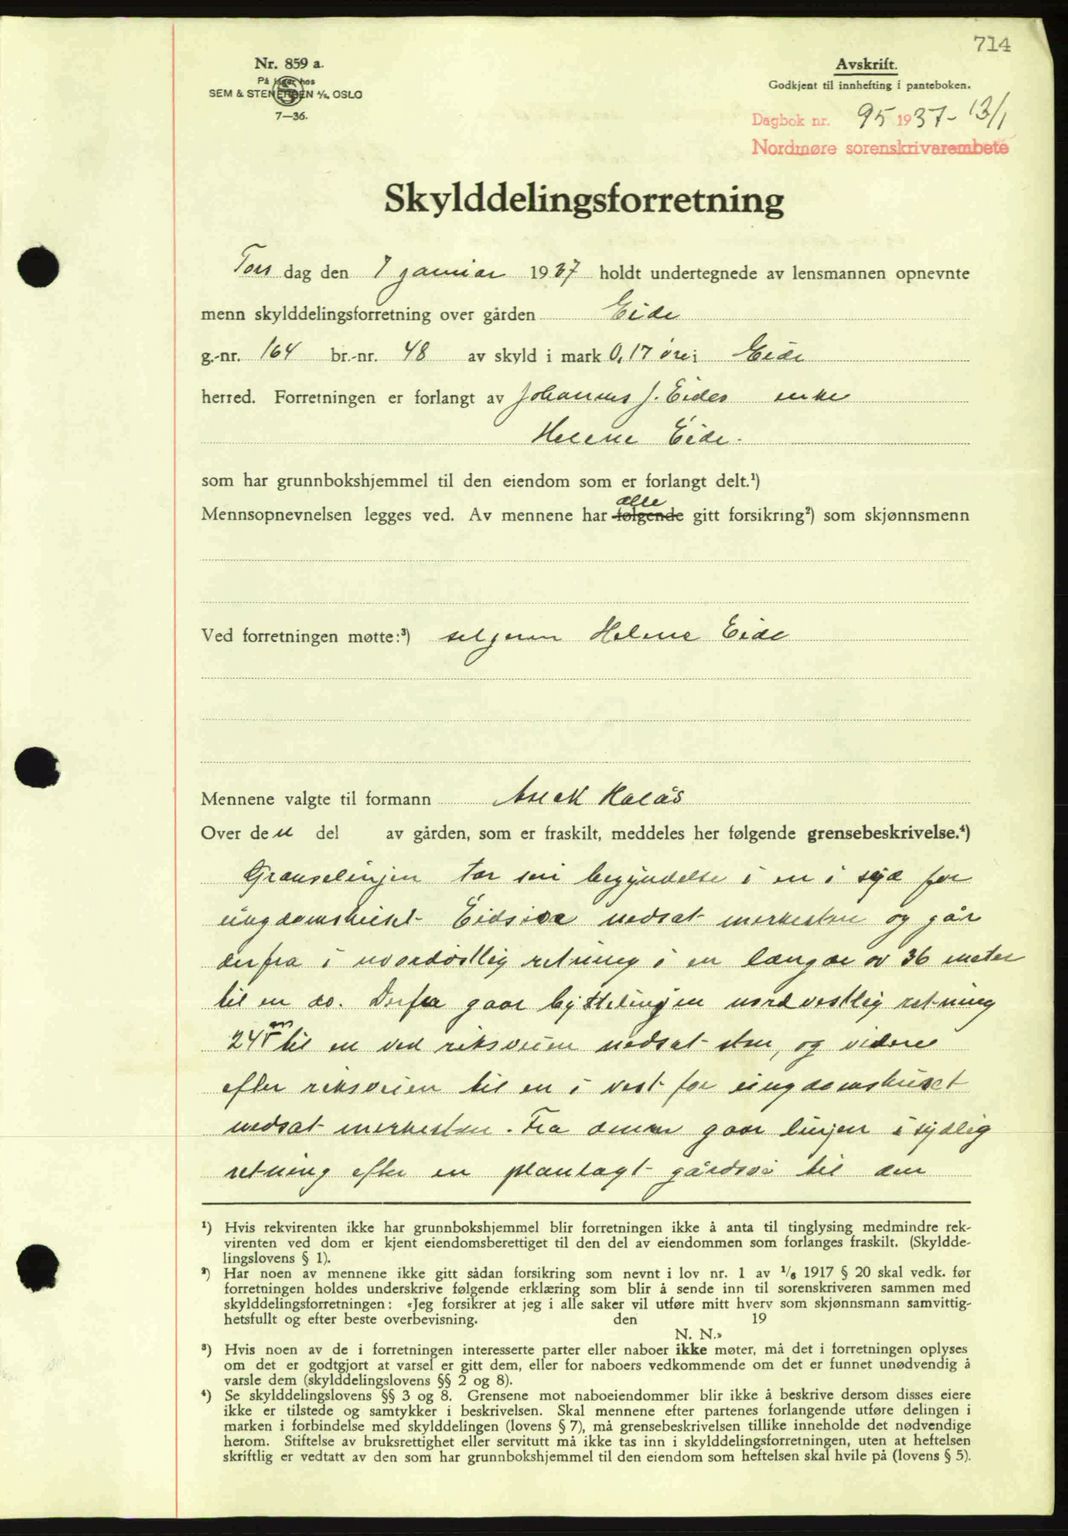 714
Nr. 859 a.
På lager hos
SEM & STENERSEN A/S, OSLO
7—36.
Avskrift.
Godkjent til innhefting i panteboken.
Dagbok nr. 95 1937- 13/1
Nordmøre sorenskriverembete
Skylddelingsforretning
Tors dag den 7 januar 1937 holdt undertegnede av lensmannen opnevnte
menn skylddelingsforretning over gården Eide
g.-nr. 164 br.-nr. 48 av skyld i mark 0,17 øre i Eide
herred. Forretningen er forlangt av Johannes J. Eides enke
Helene Eide.
som har grunnbokshjemmel til den eiendom som er forlangt delt.¹)
Mennsopnevnelsen legges ved. Av mennene har følgende alle gitt forsikring²) som skjønnsmenn
Ved forretningen møtte:³) selgeren Helene Eide
Mennene valgte til formann Aslak Halås
Over den del av gården, som er fraskilt, meddeles her følgende grensebeskrivelse.⁴)
Grænselinjen tar sin begyndelse i en i syd for
ungdomshuset nedsat merkesten og går
derfra i nordøstlig retning i en længde av 36 meter
til en do. Derfra gaar byttelinjen nordvestlig retning
24 m til en ved riksveien nedsat sten, og videre
efter riksveien til en i vest for ungdomshuset
nedsat merkesten. Fra denne gaar linjen i sydlig
retning efter en planlagt gårdsvei til den
¹) Hvis rekvirenten ikke har grunnbokshjemmel blir forretningen ikke å anta til tinglysing medmindre rek-
virenten ved dom er kjent eiendomsberettiget til den del av eiendommen som forlanges fraskilt. (Skyldde-
lingslovens § 1).
²) Har noen av mennene ikke gitt sådan forsikring som nevnt i lov nr. 1 av 1/6 1917 § 20 skal vedk. før
forretningen holdes underskrive følgende erklæring som blir å sende inn til sorenskriveren sammen med
skylddelingsforretningen: «Jeg forsikrer at jeg i alle saker vil utføre mitt hverv som skjønnsmann samvittig-
hetsfullt og efter beste overbevisning. den 19
N. N.»
³) Hvis noen av de i forretningen interesserte parter eller naboer ikke møter, må det i forretningen oplyses
om det er godtgjort at varsel er gitt dem, eller for naboers vedkommende om det er funnet unødvendig å
varsle dem (skylddelingslovens §§ 2 og 8).
⁴) Se skylddelingslovens §§ 3 og 8. Grensene mot naboeiendommer blir ikke å beskrive dersom disses eiere
ikke er tilstede og samtykker i beskrivelsen. Skal mennene efter partenes forlangende utføre delingen i
marken i forbindelse med skylddelingen (lovens § 7), må grensebeskrivelsen tillike inneholde det nødvendige
herom. Stiftelse av bruksrettighet eller servitutt må ikke tas inn i skylddelingsforretningen, uten at heftelsen
skriftlig er vedtatt av den som har grunnbokshjemmel til den eiendom som heftelsen skal hvile på (lovens § 5).